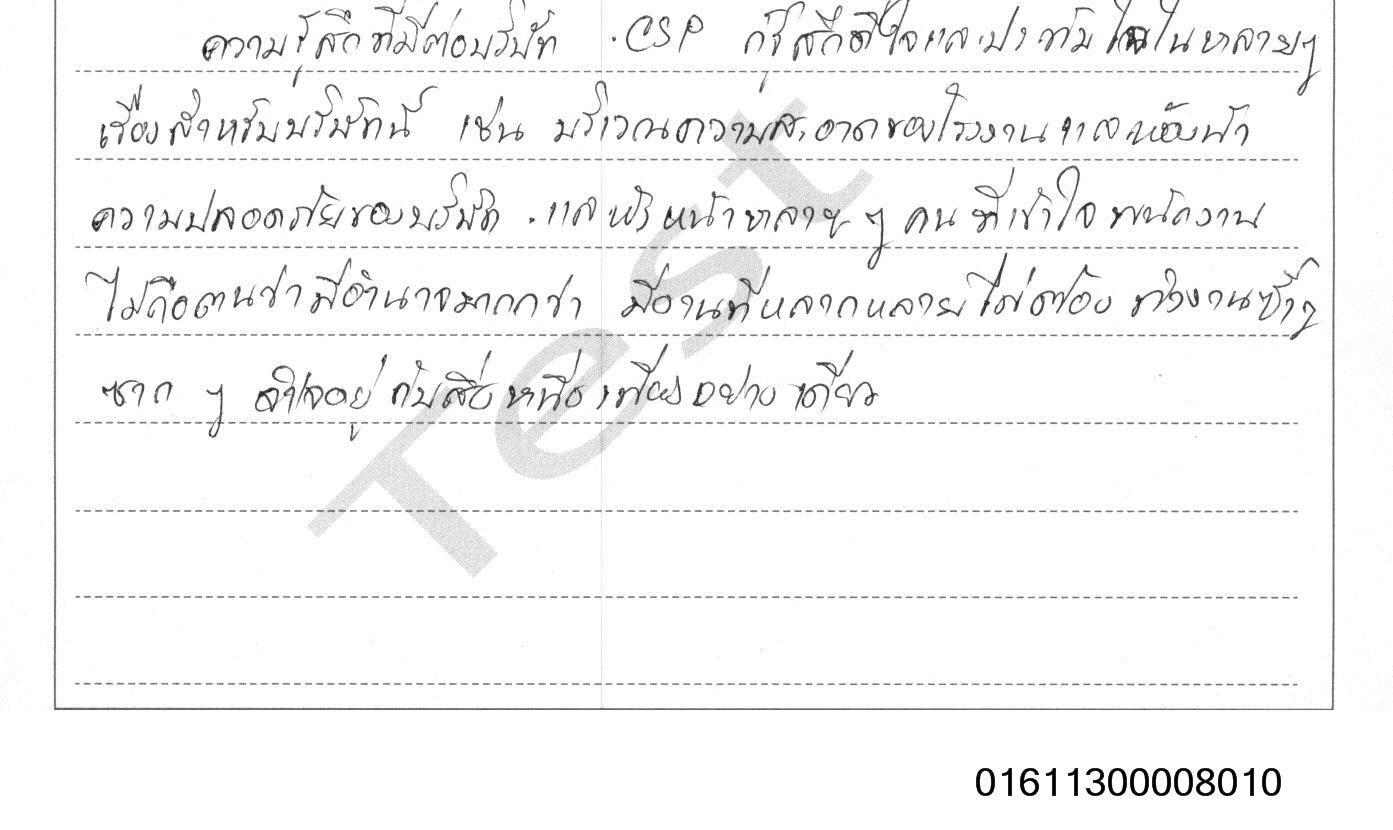 ความรู้สึกที่มีต่อบริษัท .CSP ก็รู้สึกดีใจและประทับใจในหลายๆ
เรื่องสำหรับบริษัทนี้ เช่น บริเวณความสะอาดของโรงงานและห้องน้ำ
ความปลอดภัยของบริษัท .และหัวหน้าหลายๆ คนที่เข้าใจพนักงาน
ไม่ถือตนว่ามีอำนาจมากกว่า มีงานที่หลากหลายไม่ต้อง ทำงานซ้ำๆ
ซาก ๆ จำเจอยู่กับสิ่งหนึ่งเพียงอย่างเดียว
Test
01611300008010